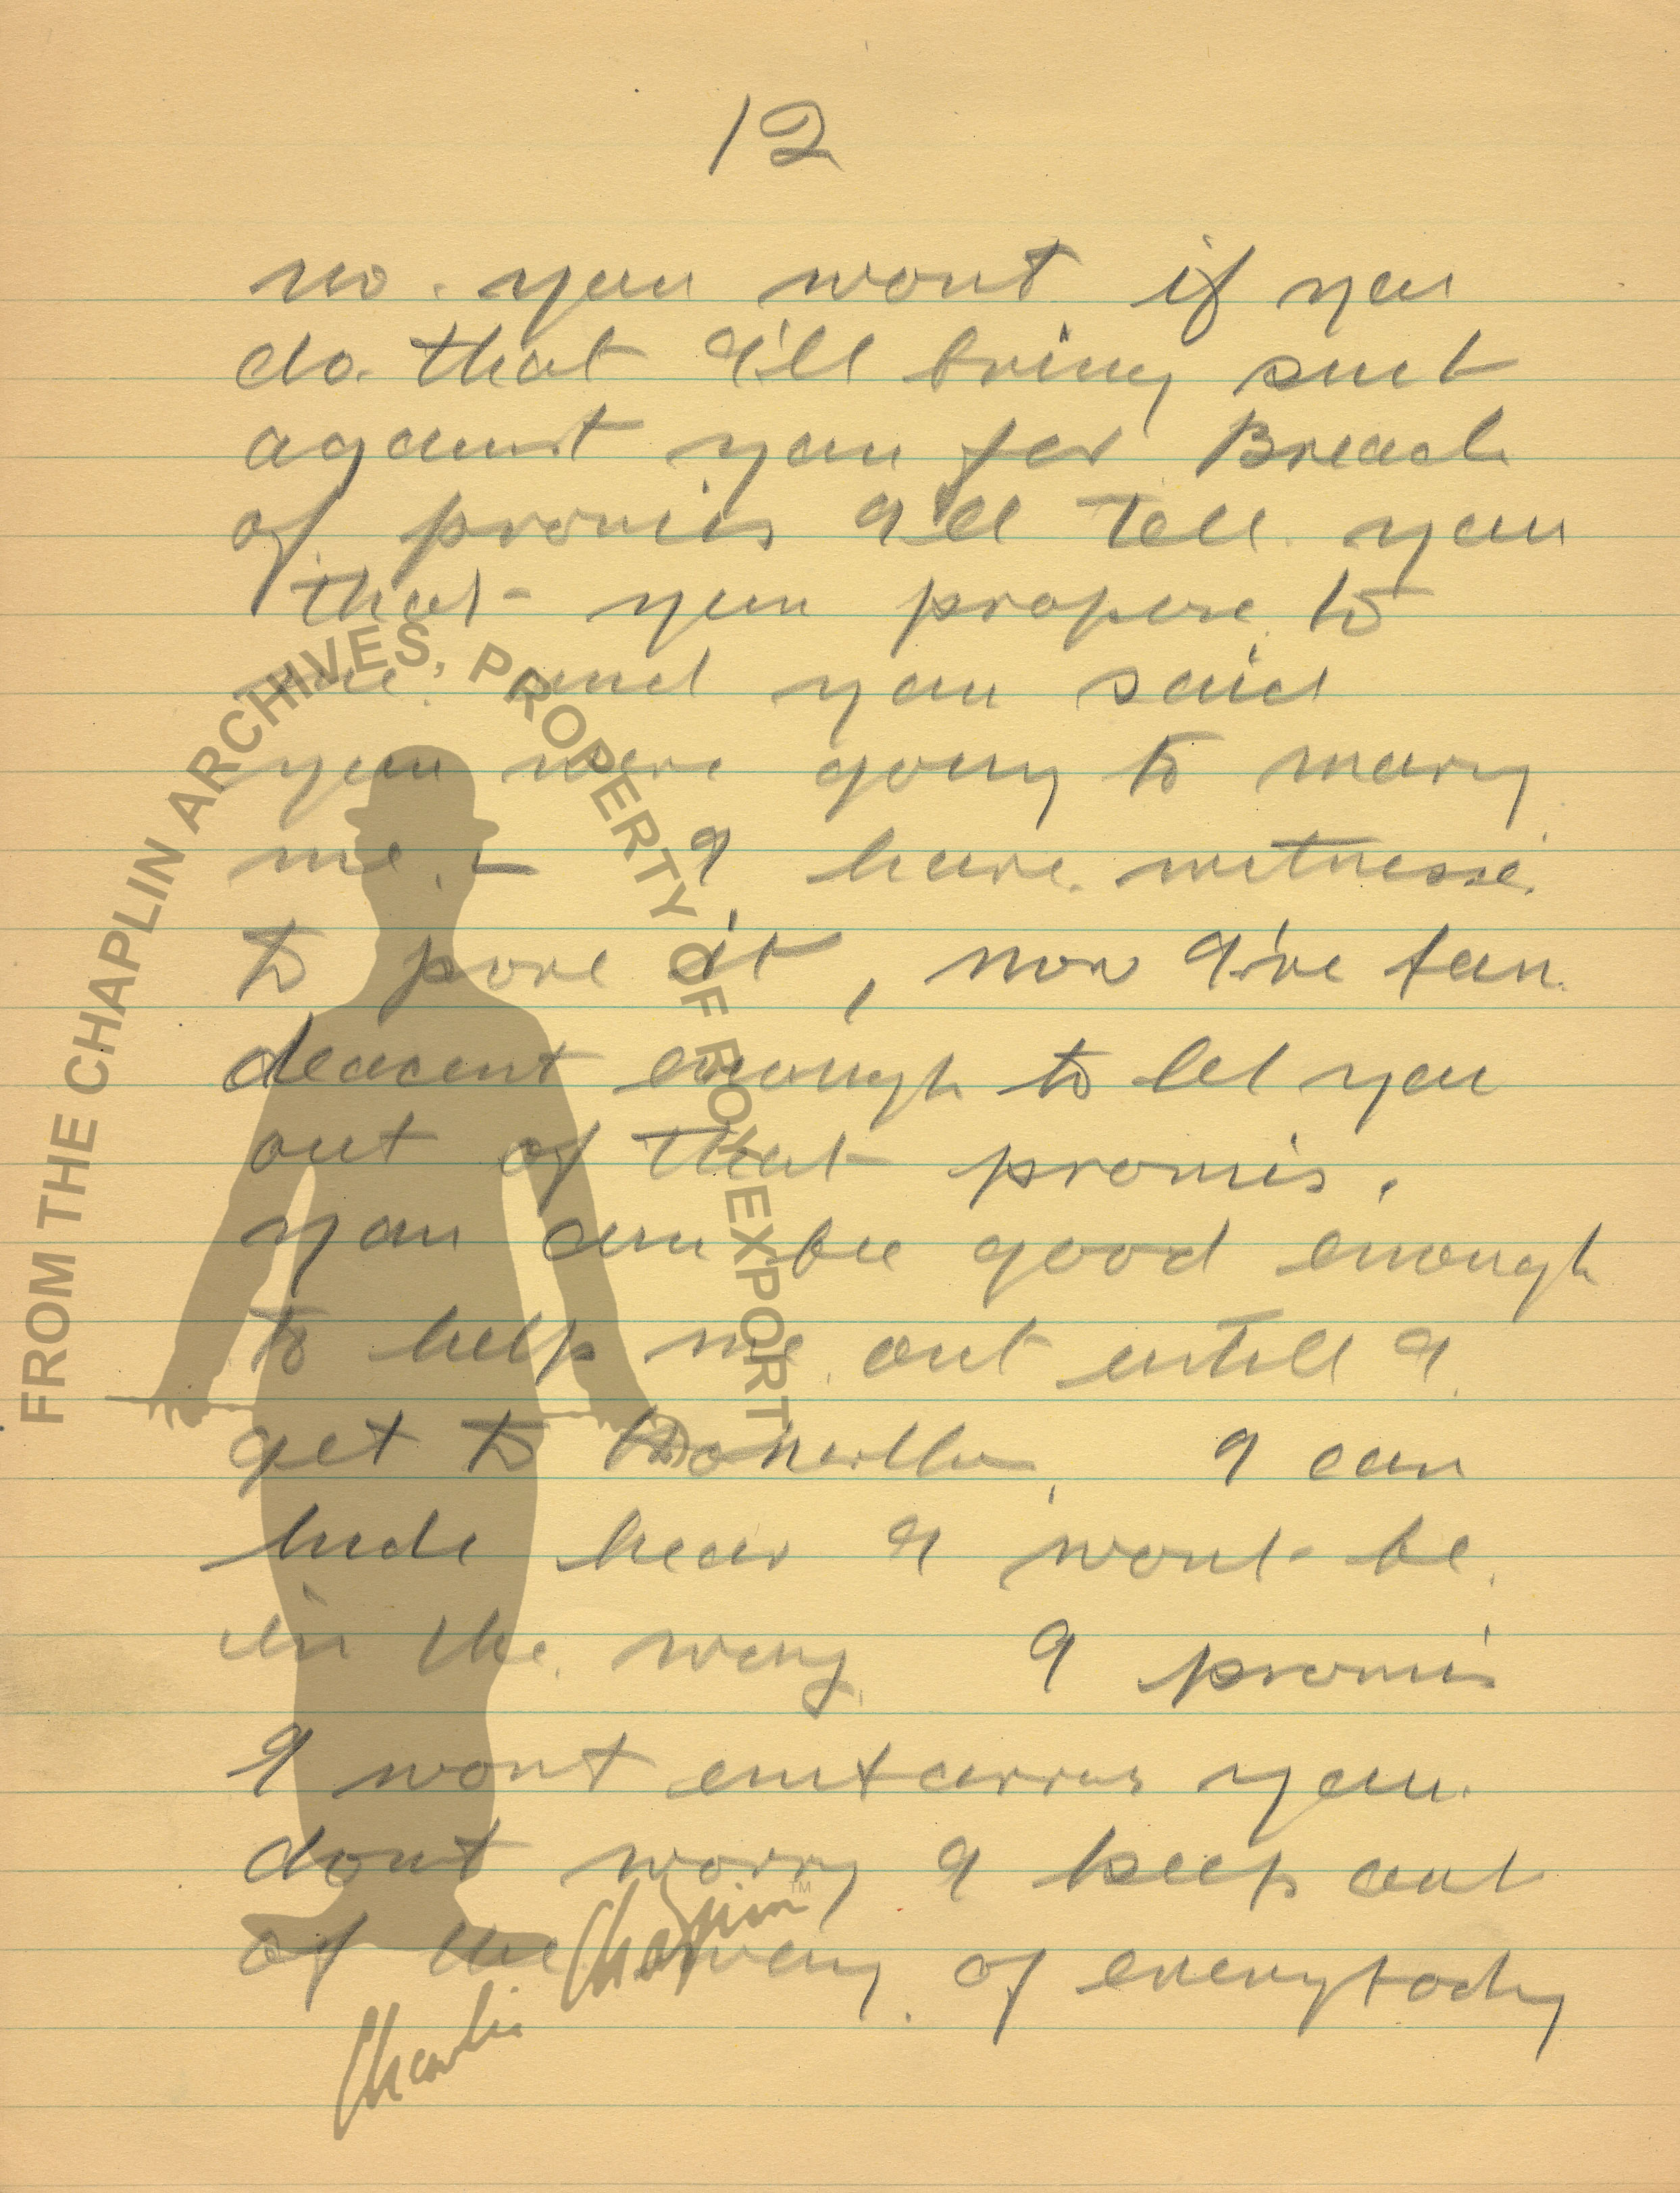 12
no. you wont if you
do. that I'll bring suit
against you for Breach
of promis I'll tell you
that you propose to
me. and you said
you were going to marry
me. - I have witnesse
to pove it, now I've
deacent enough to let you
out of that promis.
you can be good enough
to help me out untill I
get to I can
hide hear I wont be
in the way I promis
I wont embarras you.
dont worry I keep out
of the way of everybody
FROM THE CHAPLIN ARCHIVES, PROPERTY OF ROY EXPORT
Charlie Chaplin™